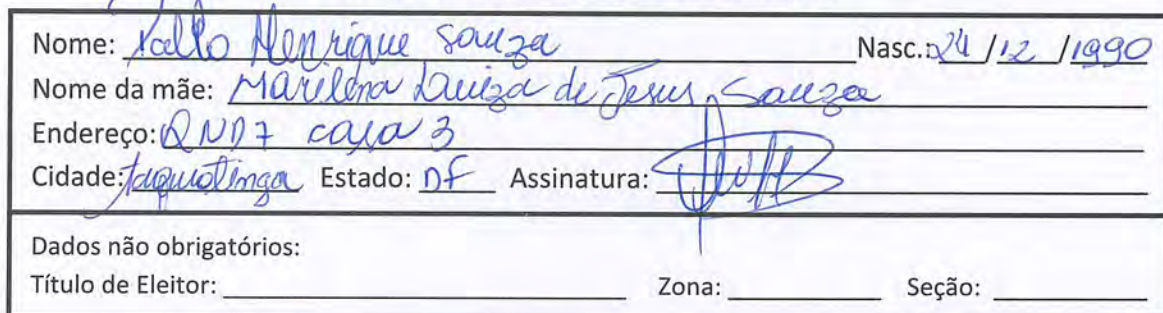 Nome: Kallo Henrique Souza Nasc.: 24 / 12 / 1990
Nome da mãe: Marilena Luiza de Jesus Souza
Endereço: QND 7 casa 3
Cidade: Taguatinga Estado: DF Assinatura:
Dados não obrigatórios:
Título de Eleitor: Zona: Seção: